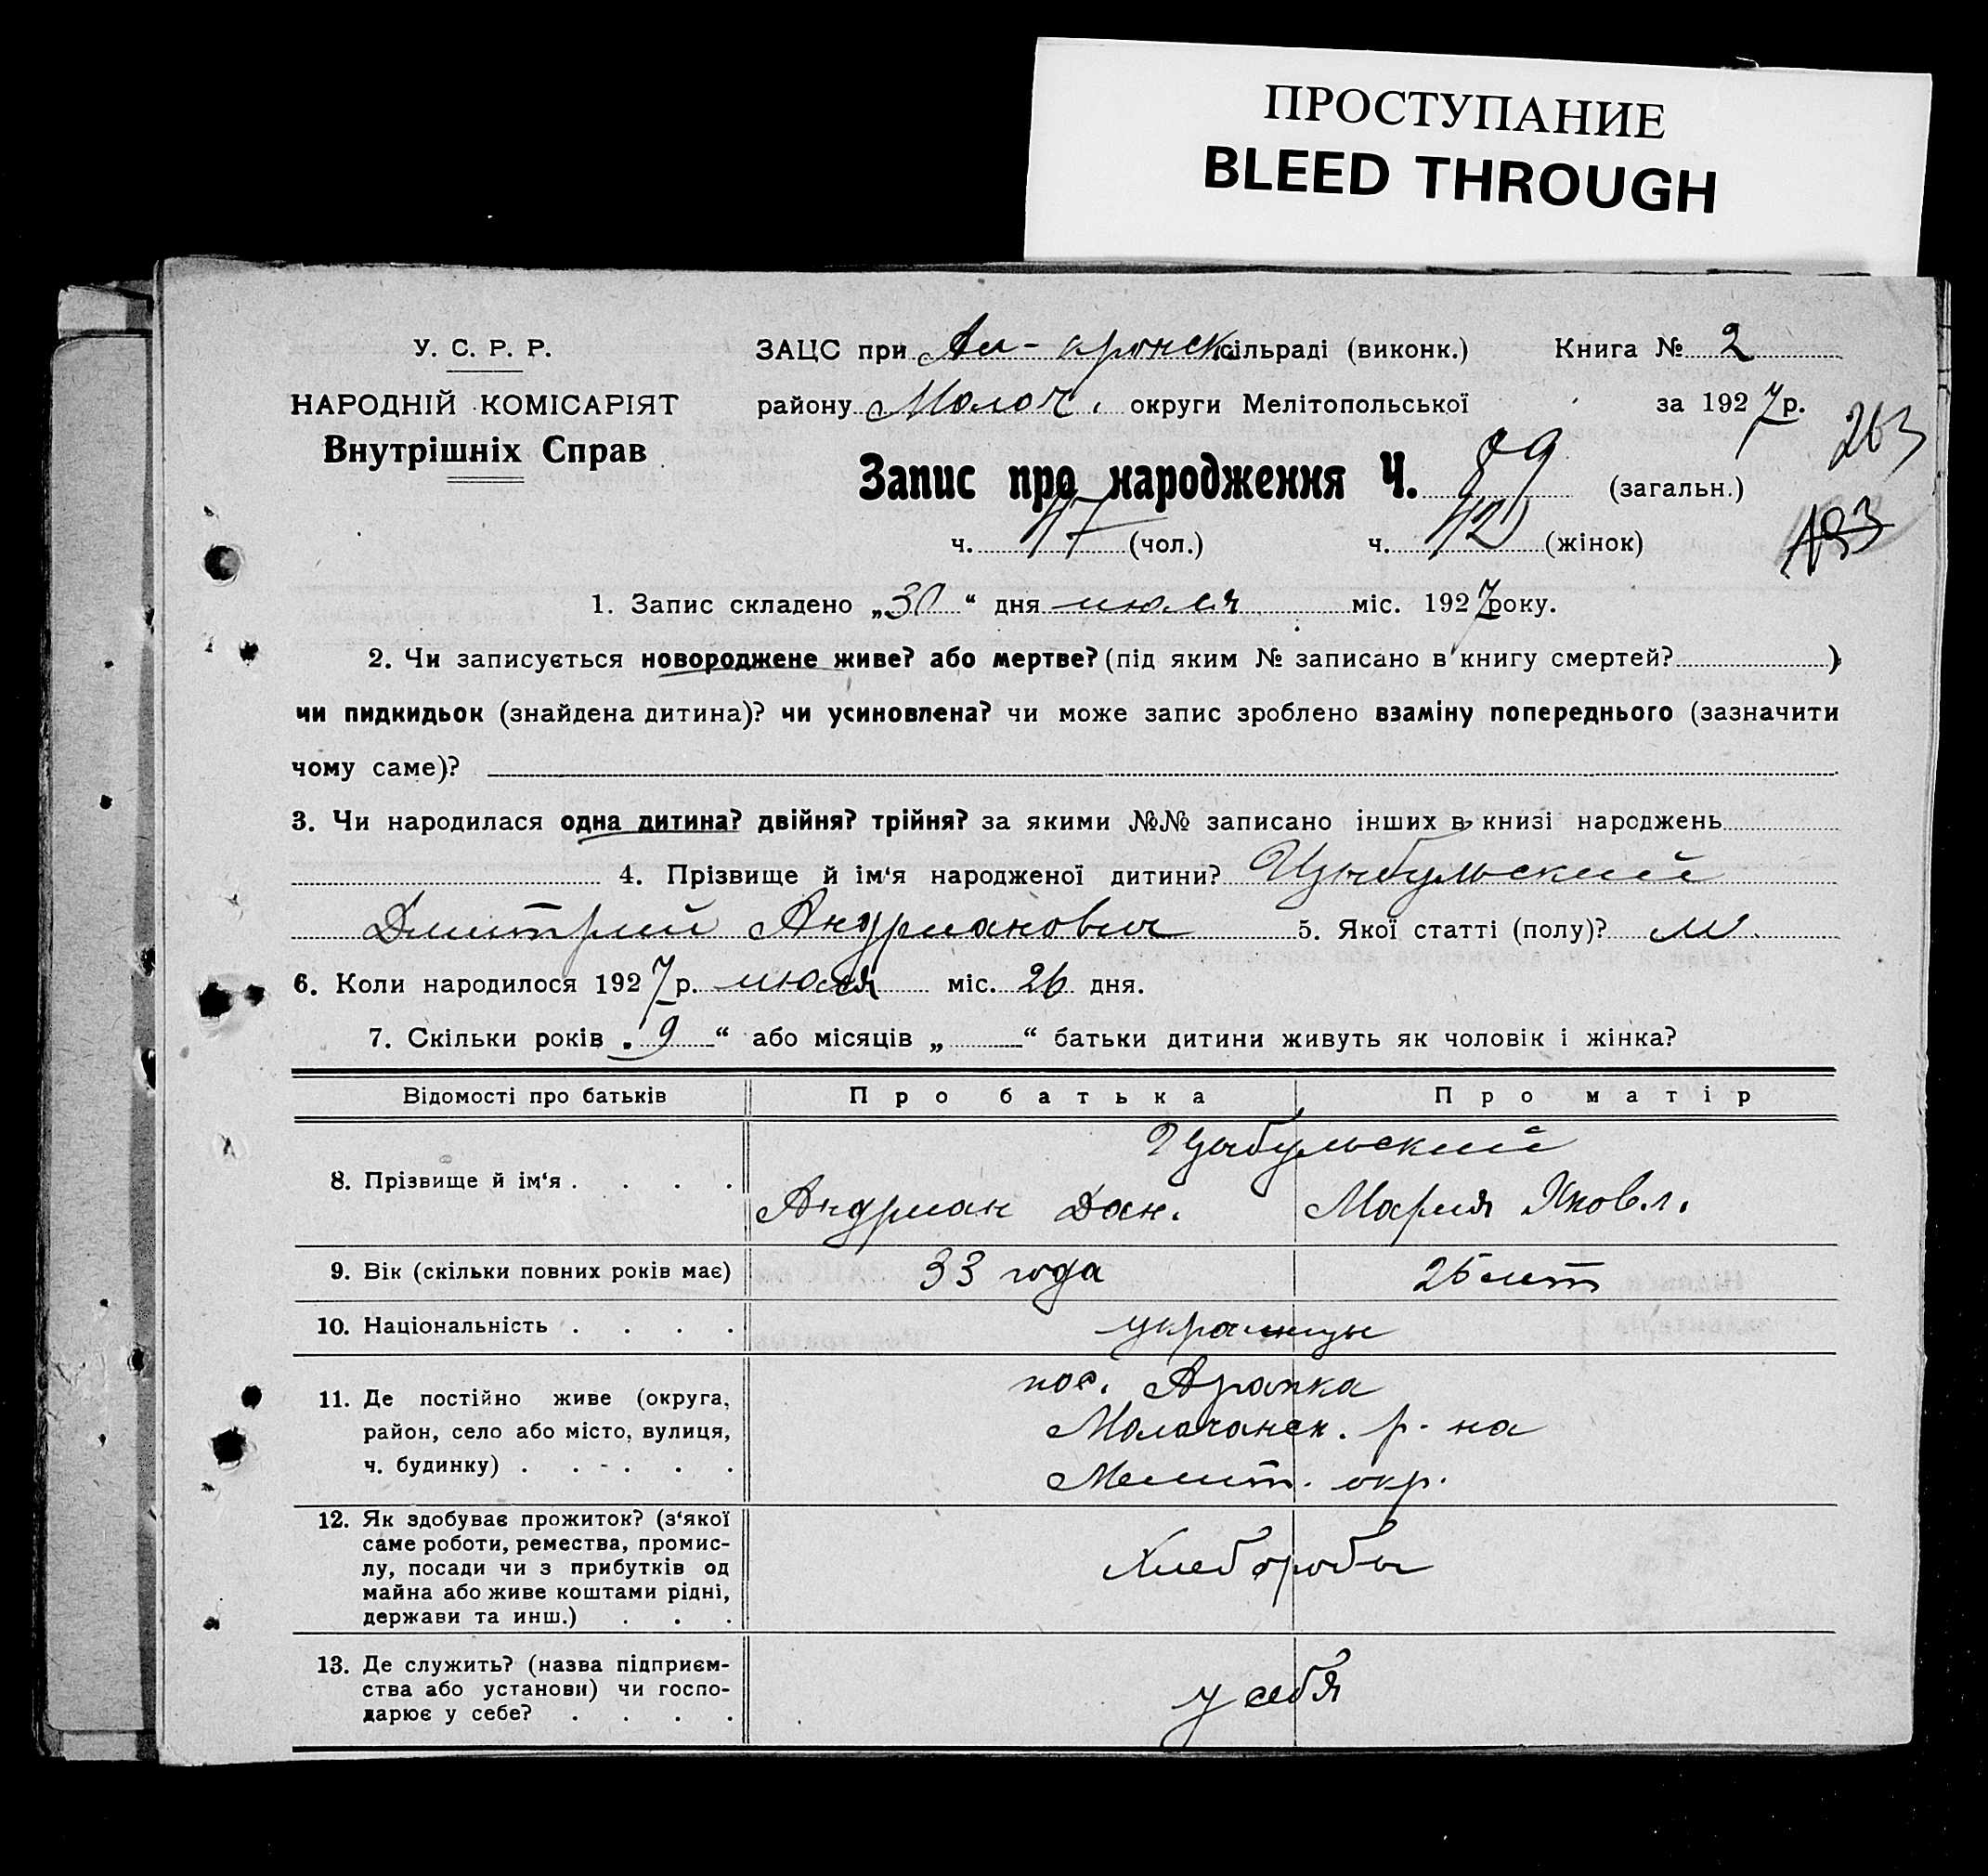 ПРОСТУПАНИЕ
BLEED THROUGH
У. С. Р. Р.
НАРОДНІЙ КОМІСАРІЯТ
Внутрішніх Справ
ЗАЦС при сільраді (виконк.) Книга № 2
району Молоч. округи Мелітопольської за 1927 р.
263
Запис про народження Ч. 89 (загальн.)
ч. 47 (чол.) ч. 42 (жінок)
193
1. Запис складено „30“ дня июля міс. 1927 року.
2. Чи записується новороджене живе? або мертве? (під яким № записано в книгу смертей? )
чи пидкидьок (знайдена дитина)? чи усиновлена? чи може запис зроблено взаміну попереднього (зазначити
чому саме)?
3. Чи народилася одна дитина? двійня? трійня? за якими №№ записано інших в книзі народжень
4. Прізвище й ім‘я народженої дитини? Цыбульский
Дмитрий Андрианович 5. Якої статті (полу)? м.
6. Коли народилося 1927 р. июля міс. 26 дня.
7. Скільки років „9“ або місяців „ “ батьки дитини живуть як чоловік і жінка?
Відомості про батьків Про батька Про матір
8. Прізвище й ім‘я . . . . Цыбульский
Андриан Дан. Мария Яковл.
9. Вік (скільки повних років має) 33 года 25 лет
10. Національність . . . . украинцы
11. Де постійно живе (округа, район, село або місто, вулиця, ч. будинку) . . . . .
пос. Аропка
Молочанск. р-на
Мелит. окр.
12. Як здобуває прожиток? (з‘якої
саме роботи, ремества, промис-
лу, посади чи з прибутків од
майна або живе коштами рідні,
держави та инш.) . . .
Хлеборобы
13. Де служить? (назва підприєм-
ства або установи) чи госпо-
дарює у себе? . . . .
у себя